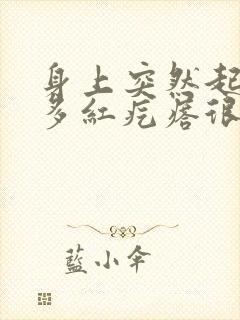 身上突然起
多紅疙瘩很
藍小傘